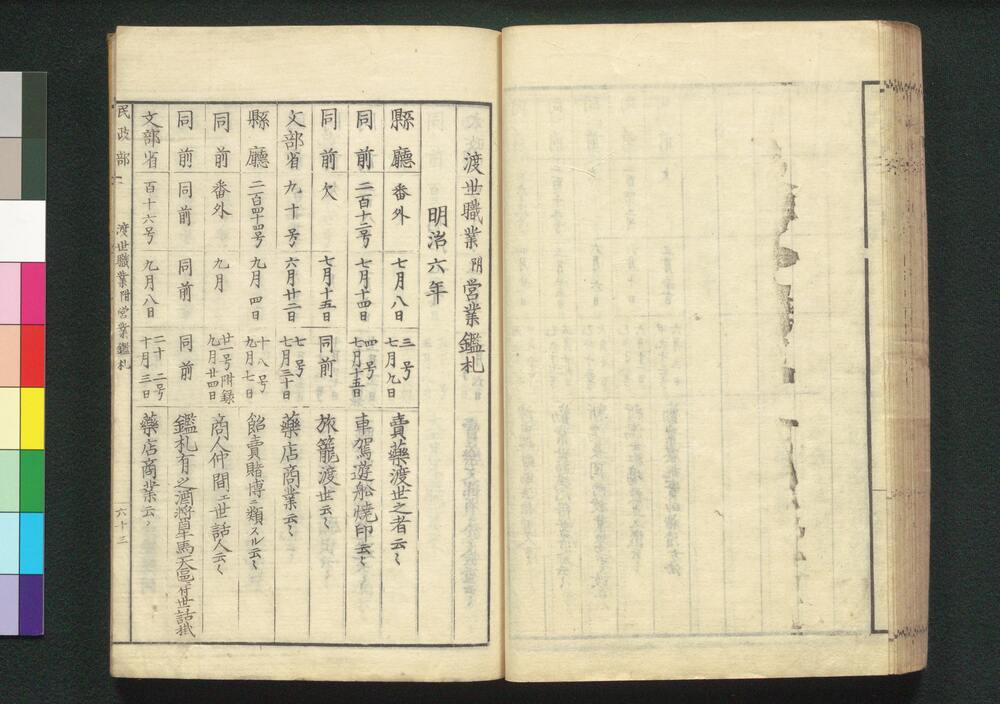 渡世職業 附 営業鑑札
明治六年
縣廳 番外 七月八日 三号 七月九日 賣藥渡世之者云〻
同前 二百十二号 七月十四日 四号 七月十五日 車駕遊舩焼印云〻
同前 欠 七月十五日 同前 旅籠渡世云〻
文部省 九十号 六月廿二日 七号 七月三十日 藥店商業云〻
縣廳 二百四十四号 九月四日 十八号 九月七日 飴賣賭博ニ類スル云〻
同前 番外 九月 廿一号附録 九月廿四日 商人仲間エ世話人云〻
同前 同前 同前 同前 鑑札有之酒将車馬天邑付世話掛
文部省 百十六号 九月八日 二十二号 十月三日 藥店商業云〻
民政部 渡世職業附営業鑑札 六十三